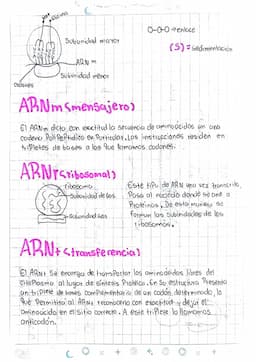 Subunidad mayor
O-O-O → enlace
(S) = sedimentación
ARN m
Subunidad menor
ARNm (mensajero)
El ARNm dicta con exactitud la secuencia de aminoácidos en una
cadena Polipeptídica en Particular. Las instrucciones residen en
tripletes de bases a los que llamamos codones.
ARNr (ribosomal)
Ribosoma
Subunidad
Subunidad
Este tipo de ARN una vez transcrito,
Pasa al nucleolo donde se une a
Proteínas. De esta manera se
forman las subunidades de los
ribosomas.
ARNt (transferencia)
El ARNt se encarga de transportar los aminoácidos libres del
citoplasma al lugar de síntesis Proteica. En su estructura Presenta
un triplete de bases complementario de un codón determinado, lo
que Permitirá al ARNt reconocerlo con exactitud y dejar el
aminoácido en el sitio correcto. A este triplete lo llamamos
anticodón.